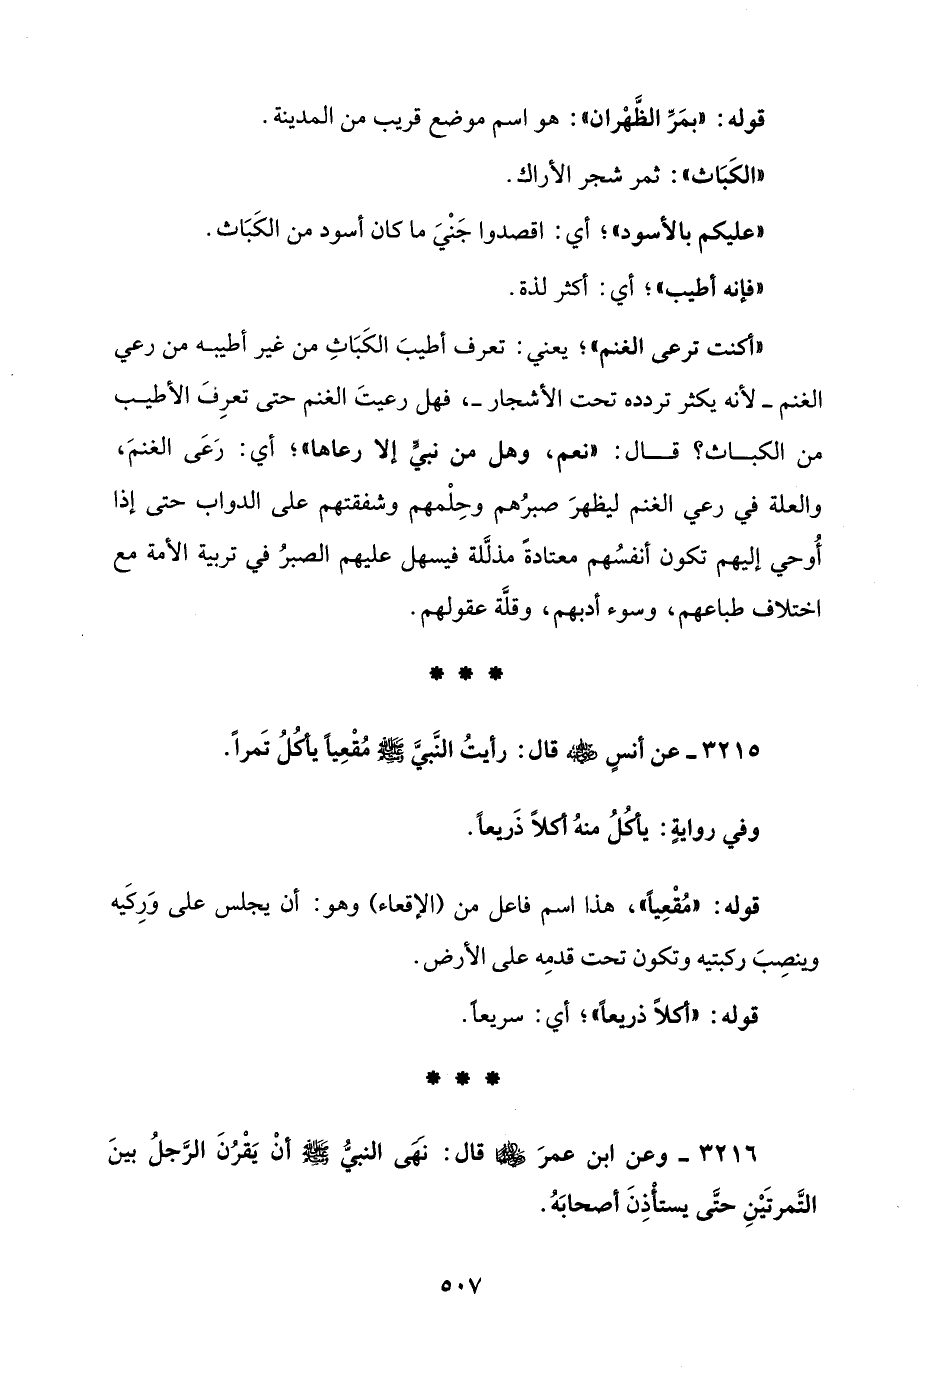 قوله: «بمَرِّ الظَّهْران»: هو اسم موضع قريب من المدينة.
«الكَبَاث»: ثمر شجر الأراك.
«عليكم بالأسود»؛ أي: اقصدوا جَنْيَ ما كان أسود من الكَبَاث.
«فإنه أطيب»؛ أي: أكثر لذة.
«أكنت ترعى الغنم»؛ يعني: تعرف أطيبَ الكَبَاثِ من غير أطيبه من رعي
الغنم ـ لأنه يكثر تردده تحت الأشجار ـ، فهل رعيتَ الغنم حتى تعرِفَ الأطيب
من الكباث؟ قال: «نعم، وهل من نبيٍّ إلا رعاها»؛ أي: رَعَى الغنمَ،
والعلة في رعي الغنم ليظهرَ صبرُهم وحِلْمهم وشفقتهم على الدواب حتى إذا
أُوحي إليهم تكون أنفسُهم معتادةً مذلَّلة فيسهل عليهم الصبرُ في تربية الأمة مع
اختلاف طباعهم، وسوء أدبهم، وقلَّة عقولهم.
* * *
٣٢١٥ ـ عن أنسٍ ﵁ قال: رأيتُ النَّبيَّ ﷺ مُقْعِياً يأكُلُ تَمراً.
وفي روايةٍ: يأكُلُ منهُ أكلاً ذَريعاً.
قوله: «مُقْعِياً»، هذا اسم فاعل من (الإقعاء) وهو: أن يجلس على وَرِكَيه
وينصِبَ ركبتيه وتكون تحت قدمِه على الأرض.
قوله: «أكلاً ذريعاً»؛ أي: سريعاً.
* * *
٣٢١٦ ـ وعن ابن عمرَ ﵄ قال: نهَى النبيُّ ﷺ أنْ يَقْرُنَ الرَّجلُ بينَ
التَّمرتَيْنِ حتَّى يستأْذِنَ أصحابَهُ.
٥٠٧